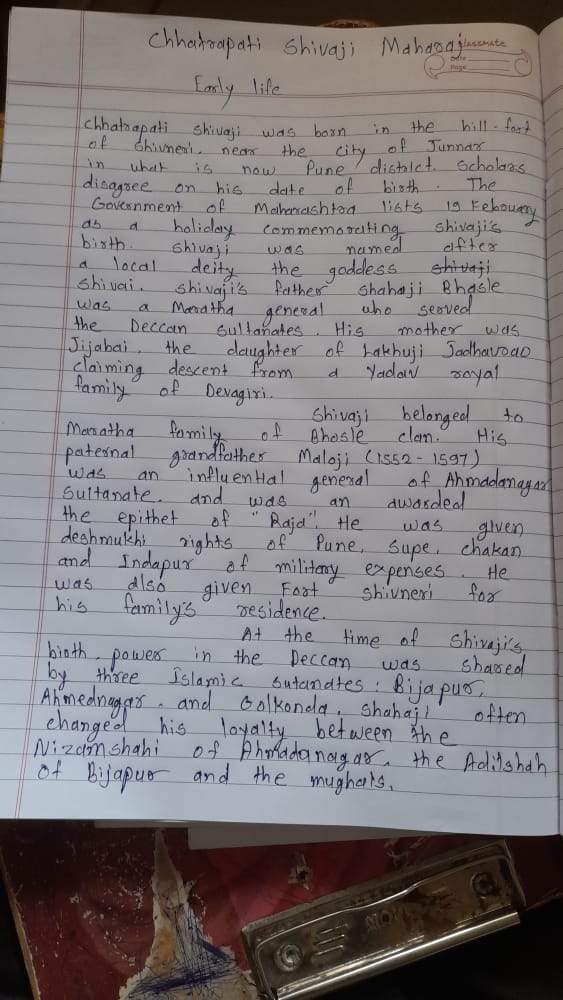 Chhatrapati Shivaji Maharaj
classmate
Date
Page
Early life
Chhatrapati Shivaji was born in the hill-fort
of Shivneri. near the city of Junnar
in what is now Pune distrlct. Scholars
disagree on his date of birth. The
Government of Maharashtra lists 19 Febouary
as a holiday commemorating Shivaji's
birth. Shivaji was named after
a local deity the goddess shivaji
Shivai. Shivaji's father Shahaji Bhosle
was a Maratha general who served
the Deccan Sultanates. His mother was
Jijabai, the daughter of Lakhuji Jadhavrao
claiming descent from a Yadav royal
family of Devagiri.
Shivaji belonged to
Maratha family of Bhosle clan. His
paternal grandfather Maloji (1552-1597)
was an influential general of Ahmadanagar
Sultanate. and was an awarded
the epithet of "Raja". He was given
deshmukhi rights of Pune, Supe, chakan
and Indapur of military expenses. He
was also given Fort Shivneri for
his family's residence.
At the time of Shivaji's
birth. power in the Deccan was shared
by three Islamic sutanates: Bijapur,
Ahmednagar. and Golkonda. Shahaji often
changed his loyalty between the
Nizamshahi of Ahmadanagar. the Adilshah
of Bijapur and the mughals.